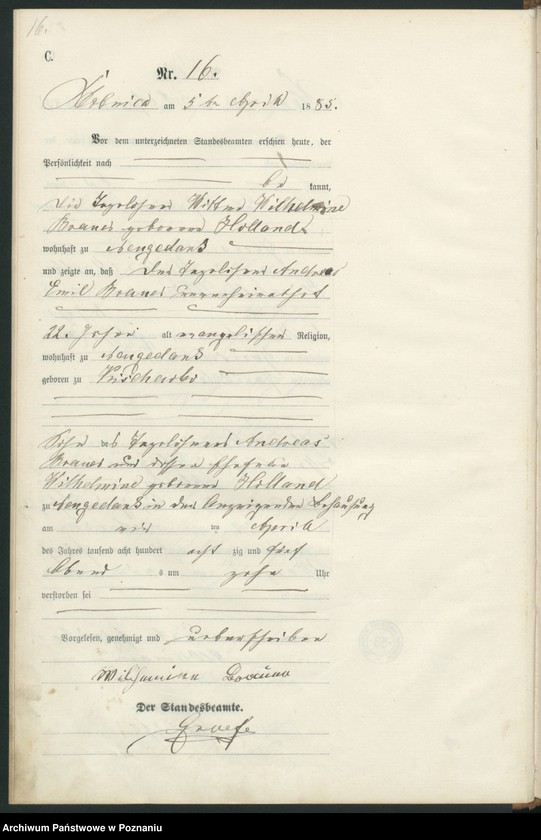 16.
C.
Nr. 16.
am 5 ten April 1885.
Vor dem unterzeichneten Standesbeamten erschien heute, der
Persönlichkeit nach
be kannt,
die Tagelöhner Wittwe Wilhelmine
geborene Holland
wohnhaft zu Neugedank
und zeigte an, daß der Tagelöhner Andreas
Emil unverheirathet
22. Jahre alt evangelischer Religion,
wohnhaft zu Neugedank
geboren zu
Sohn des Tagelöhners Andreas
und dessen Ehefrau
Wilhelmine geborene Holland
zu Neugedank in der Anzeigenden Behausung
am ten April
des Jahres tausend acht hundert acht zig und fünf
Abend s um zehn Uhr
verstorben sei
Vorgelesen, genehmigt und unterschrieben
Wilhemine
Der Standesbeamte.
Graefe
Archiwum Państwowe w Poznaniu